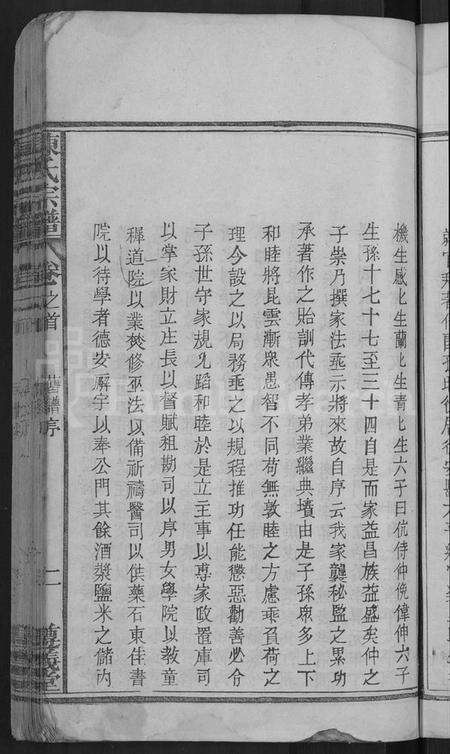 機生感匕生蘭匕生青匕生六子曰伉侍仲侁偉伸六子
生孫十七十七至三十四自是而家益昌族益盛矣仲之
子崇乃撰家法垂示將來故自序云我家襲秘監之累功
承著作之貽訓代傳孝弟業繼典墳由是子孫衆多上下
和睦將昆雲漸衆愚智不同苟無敦睦之方慮乖負荷之
理今設之以局務垂之以規程推功任能懲惡勸善必令
子孫世守家規允蹈和睦於是立主事以專家政置庫司
以掌家財立庄長以督賦租勘司以序男女學院以教童
穉道院以業焚修巫法以備祈禱醫司以供藥石東佳書
院以待學者德安廨宇以奉公門其餘酒漿鹽米之儲內
陳氏宗譜
卷之首
舊譜序
二
義門堂